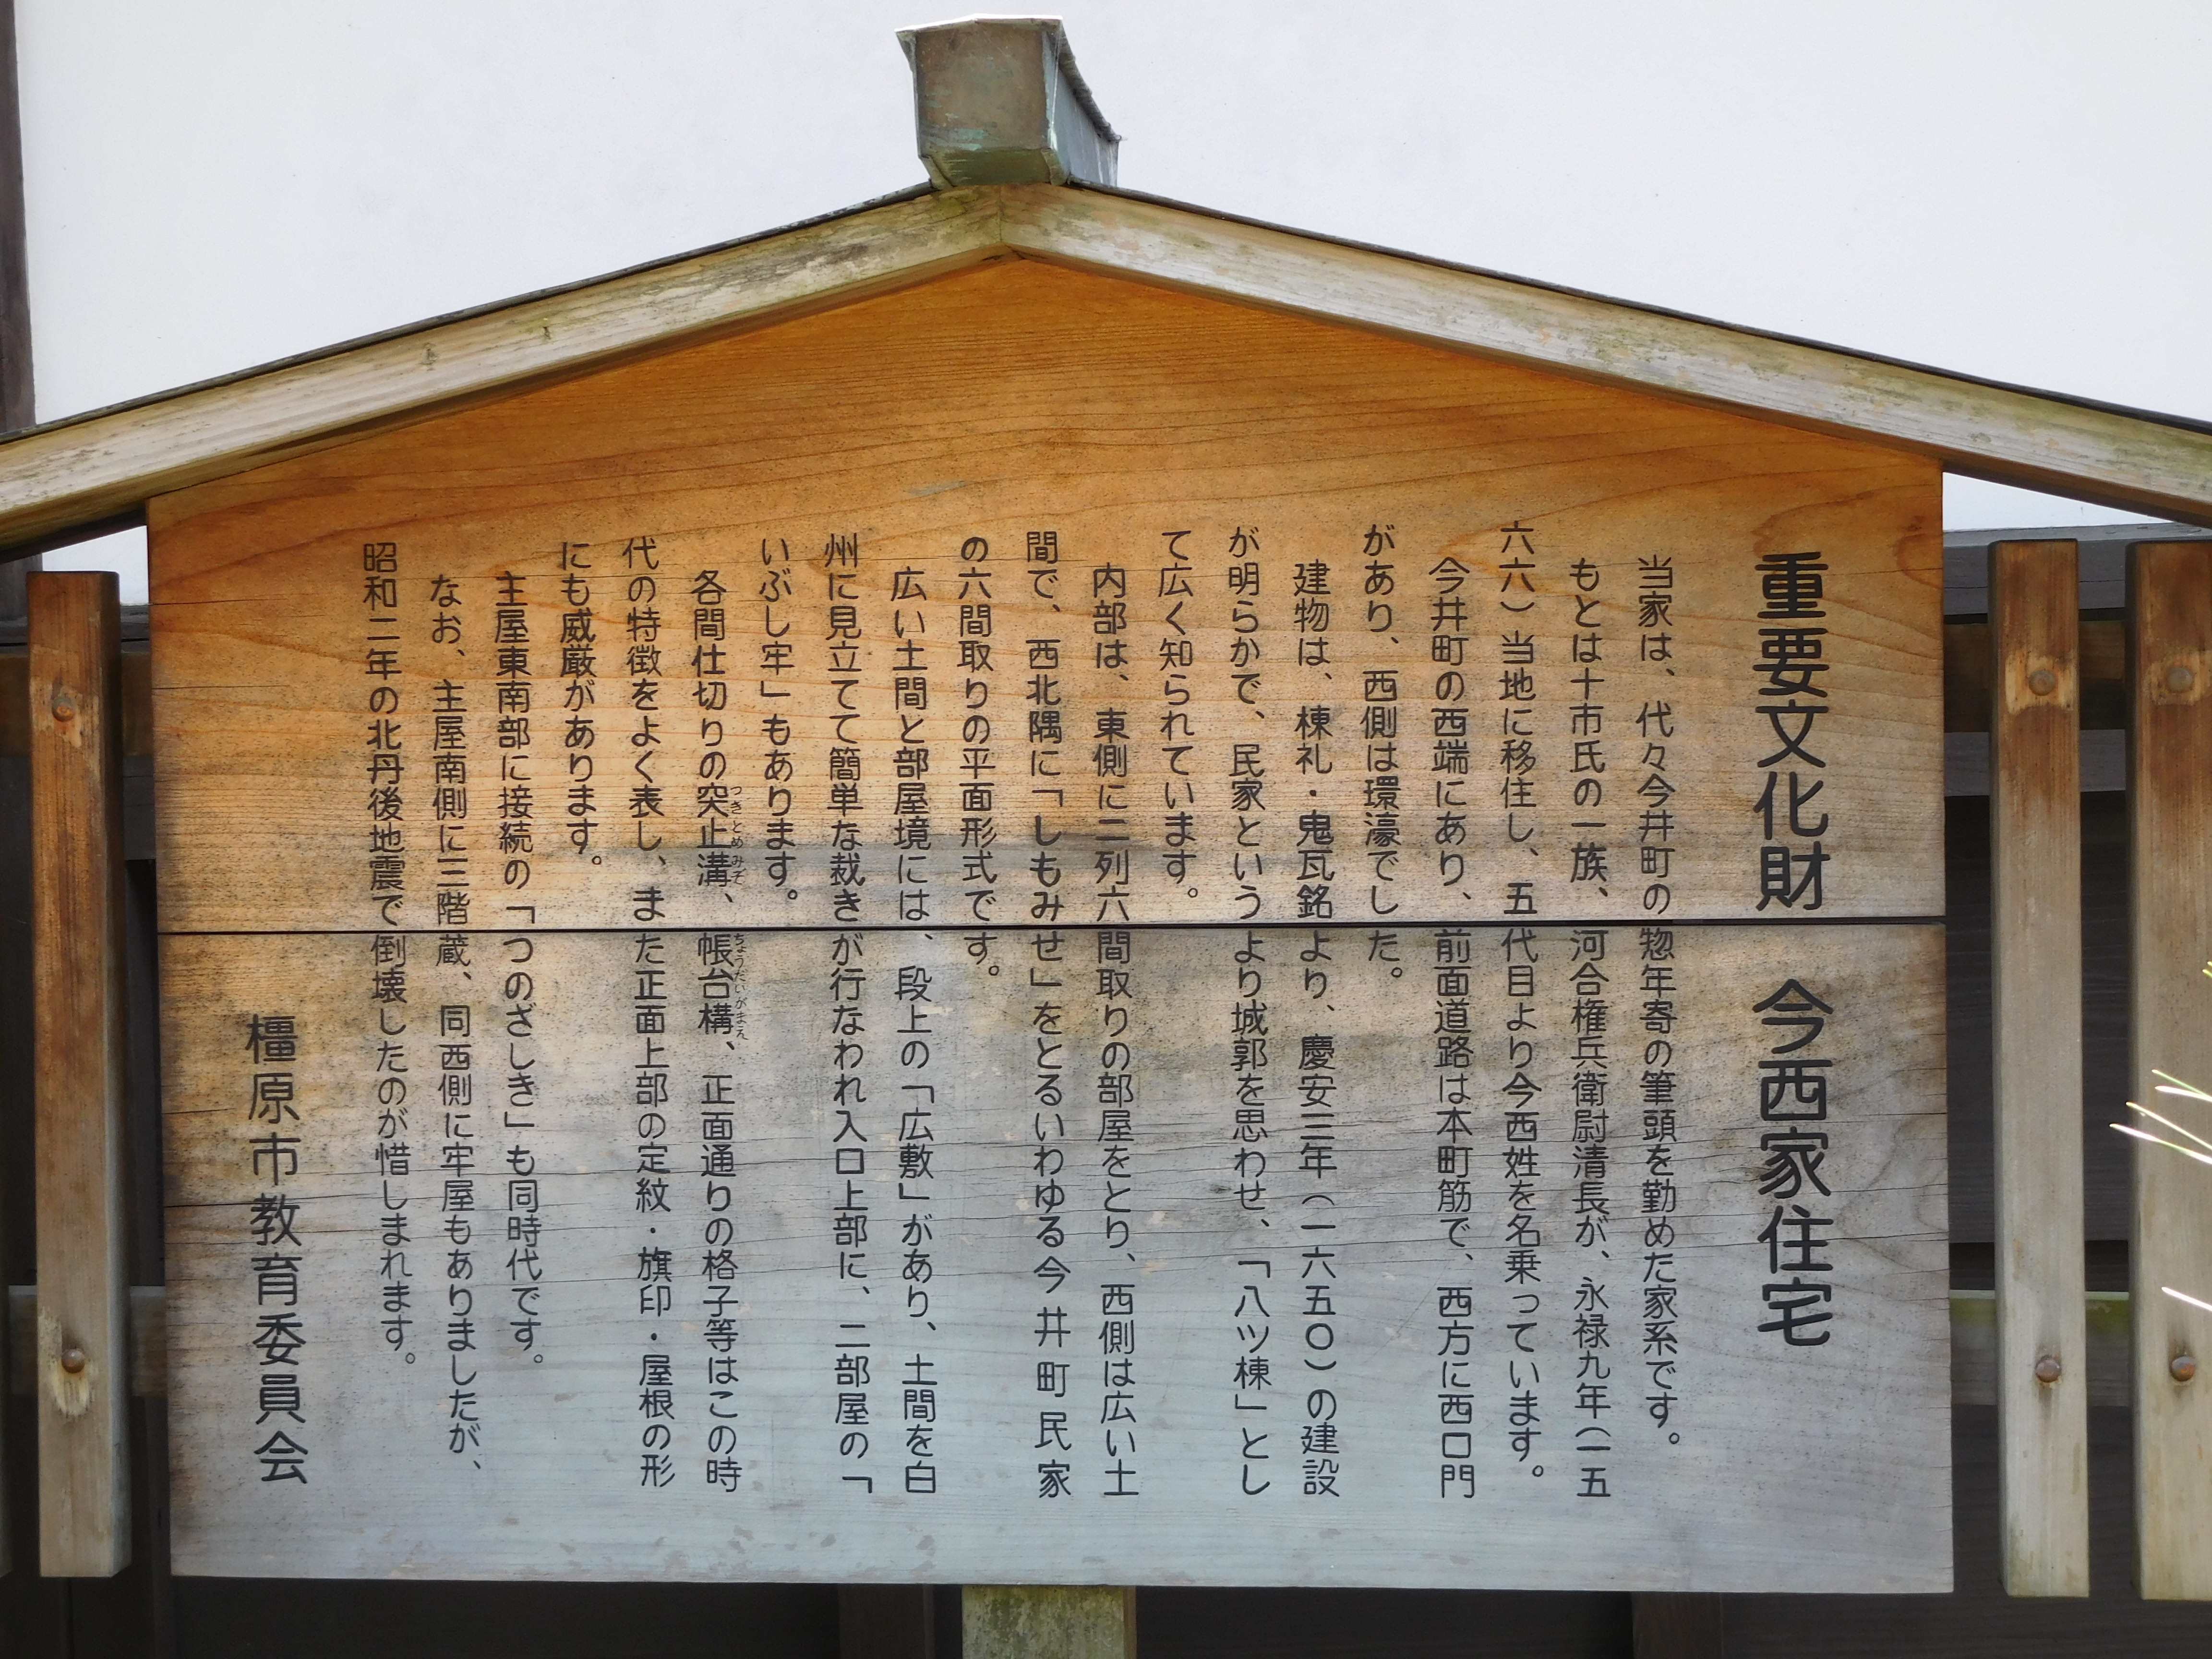 重要文化財 今西家住宅
当家は、代々今井町の惣年寄の筆頭を勤めた家系です。
もとは十市氏の一族、河合権兵衛尉清長が、永禄九年(一五
六六)当地に移住し、五代目より今西姓を名乗っています。
今井町の西端にあり、前面道路は本町筋で、西方に西口門
があり、西側は環濠でした。
建物は、棟礼・鬼瓦銘より、慶安三年(一六五〇)の建設
が明らかで、民家というより城郭を思わせ、「八ツ棟」とし
て広く知られています。
内部は、東側に二列六間取りの部屋をとり、西側は広い土
間で、西北隅に「しもみせ」をとるいわゆる今井町民家
の六間取りの平面形式です。
広い土間と部屋境には、段上の「広敷」があり、土間を白
州に見立てて簡単な裁きが行なわれ入口上部に、二部屋の「
いぶし牢」もあります。
各間仕切りの突止溝、帳台構、正面通りの格子等はこの時
つきとめみぞ ちょうだいがまえ
代の特徴をよく表し、また正面上部の定紋・旗印・屋根の形
にも威厳があります。
主屋東南部に接続の「つのざしき」も同時代です。
なお、主屋南側に三階蔵、同西側に牢屋もありましたが、
昭和二年の北丹後地震で倒壊したのが惜しまれます。
橿原市教育委員会